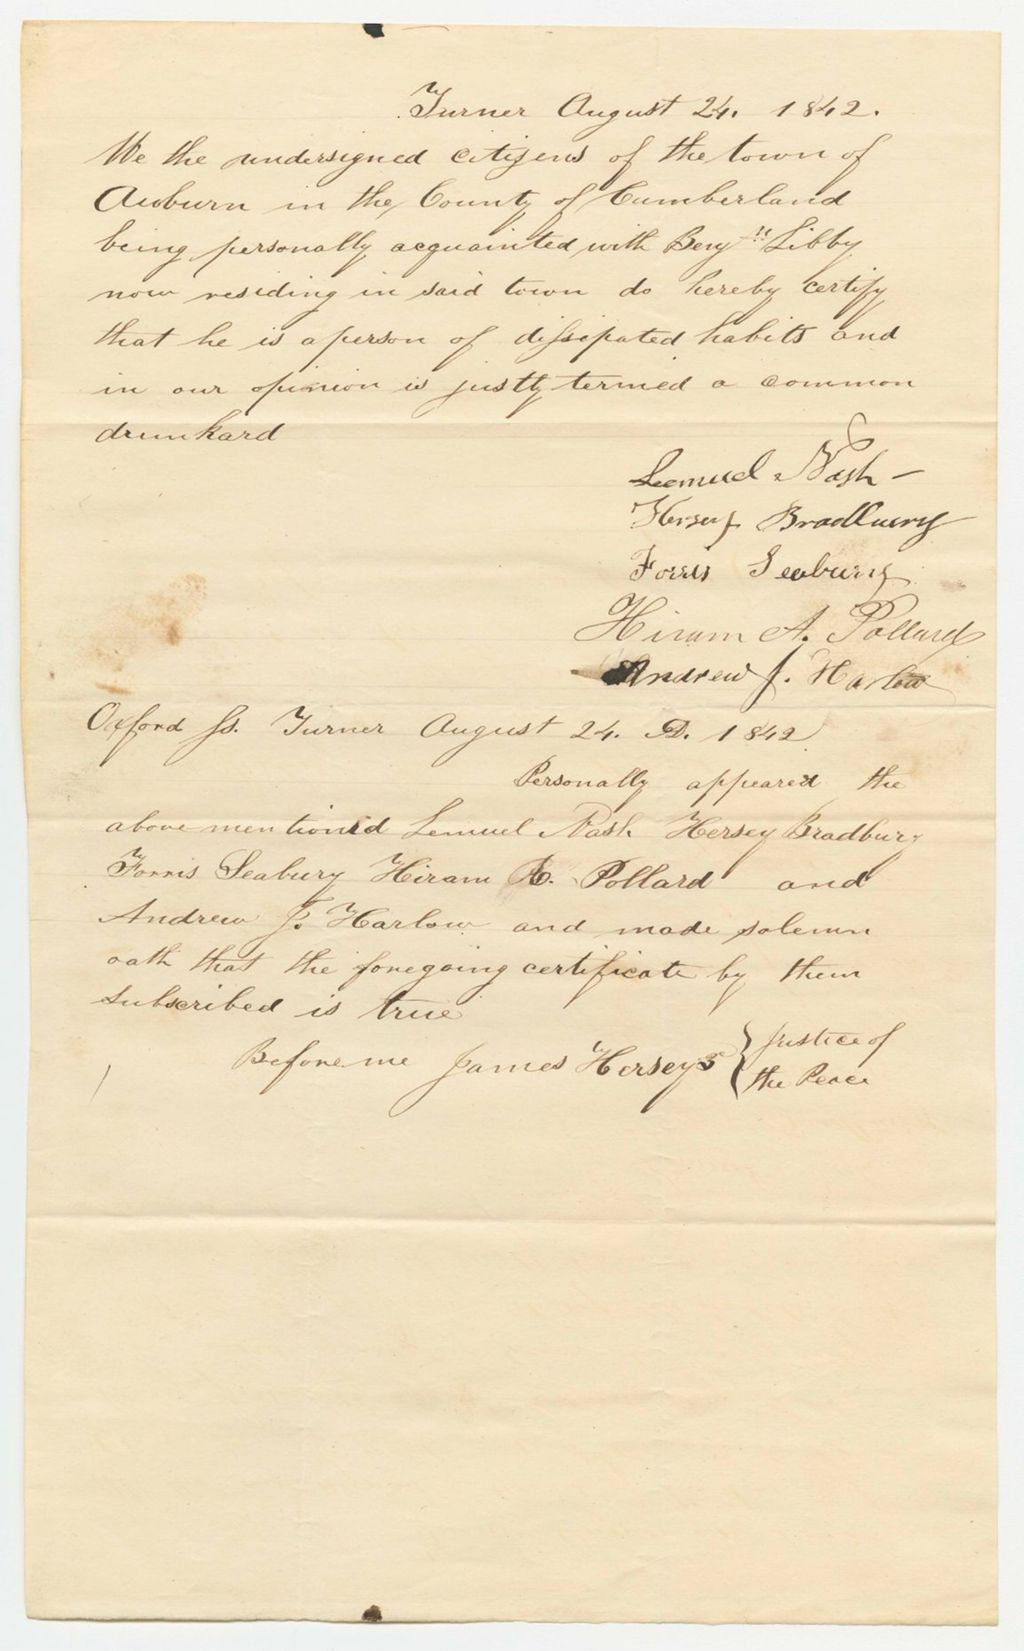 Turner August 24. 1842.
We the undersigned citizens of the town of
Auburn in the County of Cumberland
being personally acquainted with Benj n Libby
now residing in said town do hereby certify
that he is a person of dissipated habits and
in our opinion is justly termed a common
drunkard
Lemuel Nash
Hersey Bradbury
Forris Seabury
Hiram A. Pollard
Andrew J. Harlow
Oxford Ss. Turner August 24. AD. 1842
Personally appeared the
above mentioned Lemuel Nash Hersey Bradbury
Forris Seabury Hiram A. Pollard and
Andrew J. Harlow and made solemn
oath that the foregoing certificate by them
subscribed is true
Before me James Hersey } Justice of
the Peace